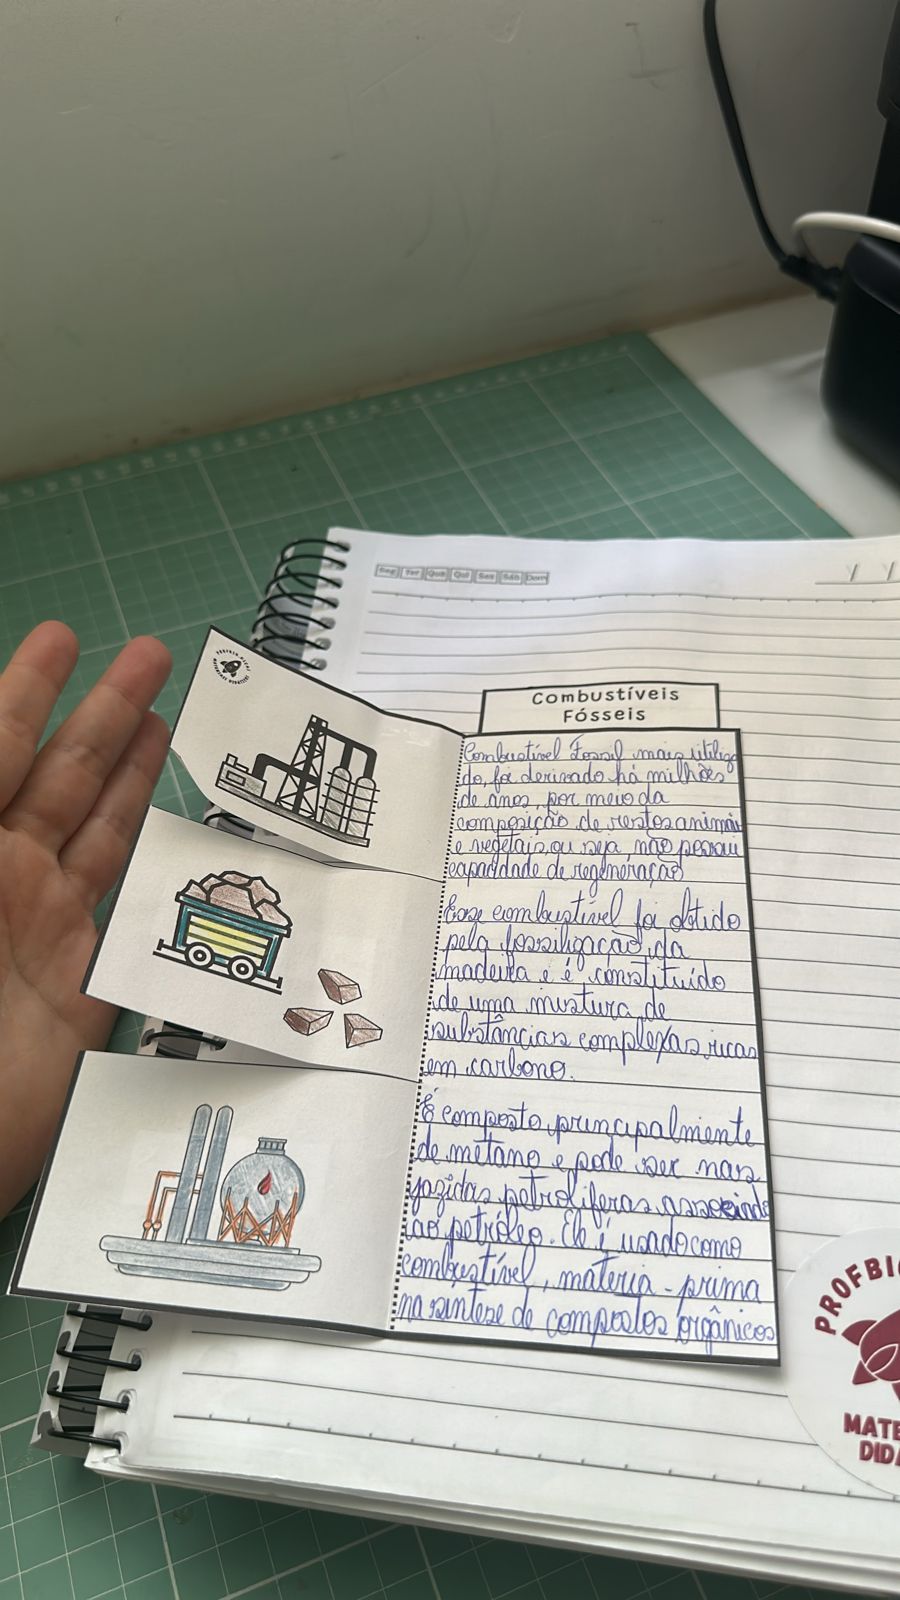 Seg Ter Qua Qui Sex Sáb Dom
Combustíveis
Fósseis
Combustível Fossil mais utiliza
do, foi derivado há milhões
de anos, por meio da
composição de restos animais
e vegetais, ou seja, não possui
capacidade de regeneração
Esse combustível foi obtido
pela fossilização da
madeira e é constituído
de uma mistura de
substâncias complexas ricas
em carbono.
É composto principalmente
de metano e pode ser nas
jazidas petrolíferas, associado
ao petróleo. Ele é usado como
combustível, materia-prima
na sintese de compostos orgânicos
PROFBIO
MATE
DIDA